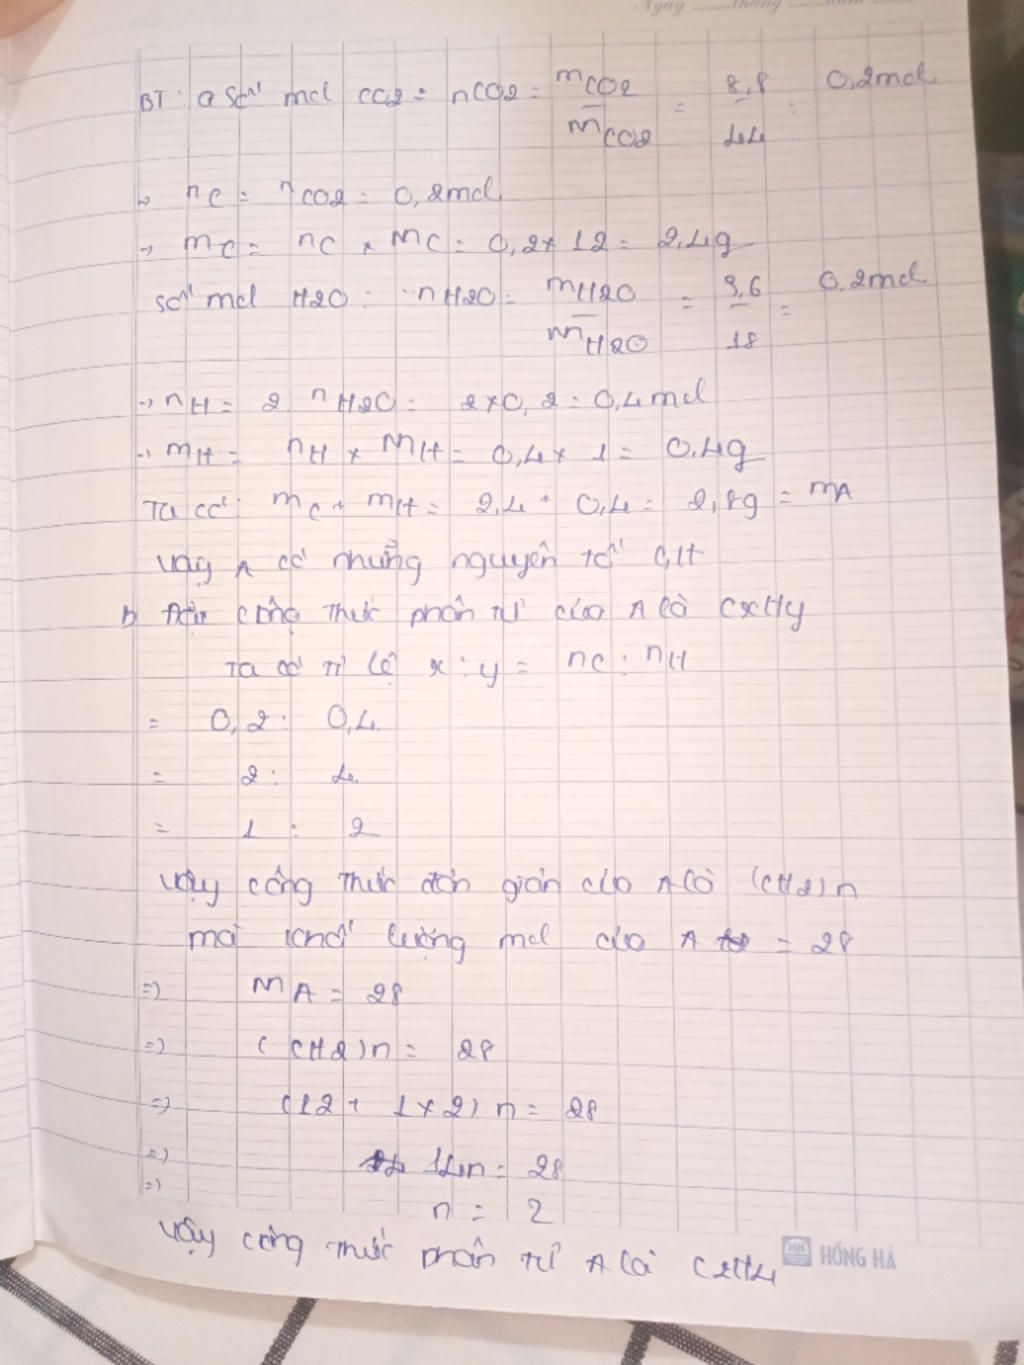 Ngày ........ tháng ........ năm ........
BT: a Số mol CO2 = nCO2 = mCO2 / MCO2 = 8,8 / 44 = 0,2mol
→ nC = nCO2 = 0,2mol
→ mC = nC × MC = 0,2 × 12 = 2,4g
số mol H2O : nH2O = mH2O / MH2O = 3,6 / 18 = 0,2mol
→ nH = 2. nH2O = 2×0,2 = 0,4mol
→ mH = nH × MH = 0,4 × 1 = 0,4g
Ta có: mC + mH = 2,4 + 0,4 = 2,8g = mA
Vậy A có những nguyên tố C,H
b công thức phân tử của A là CxHy
Ta có tỉ lệ x : y = nC : nH
= 0,2 : 0,4
= 2 : 4
= 1 : 2
Vậy công thức đơn giản của A là (CH2)n
mà khối lượng mol của A = 28
=> MA = 28
=> (CH2)n = 28
=> (12 + 1×2)n = 28
=> 14n = 28
=> n = 2
Vậy công thức phân tử A là C2H4
HH HỒNG HÀ